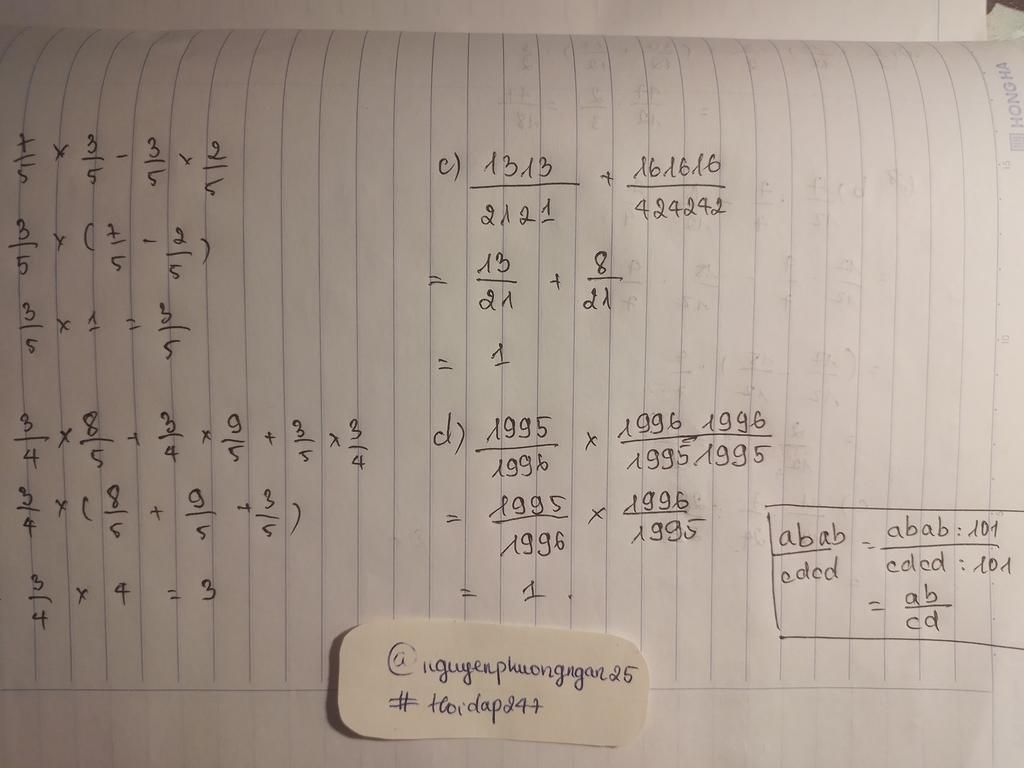 7/5 × 3/5 - 3/5 × 2/5
3/5 × (7/5 - 2/5)
3/5 × 1 = 3/5
3/4 × 8/5 + 3/4 × 9/5 + 3/5 × 3/4
3/4 × (8/5 + 9/5 + 3/5)
3/4 × 4 = 3
c) 1313/2121 + 161616/424242
= 13/21 + 8/21
= 1
d) 1995/1996 × 1996 1996/1995 1995
= 1995/1996 × 1996/1995
= 1.
abab/cdcd = abab : 101/cdcd : 101
= ab/cd
@nguyenphuongngan25
# hoidap247
HONG HA